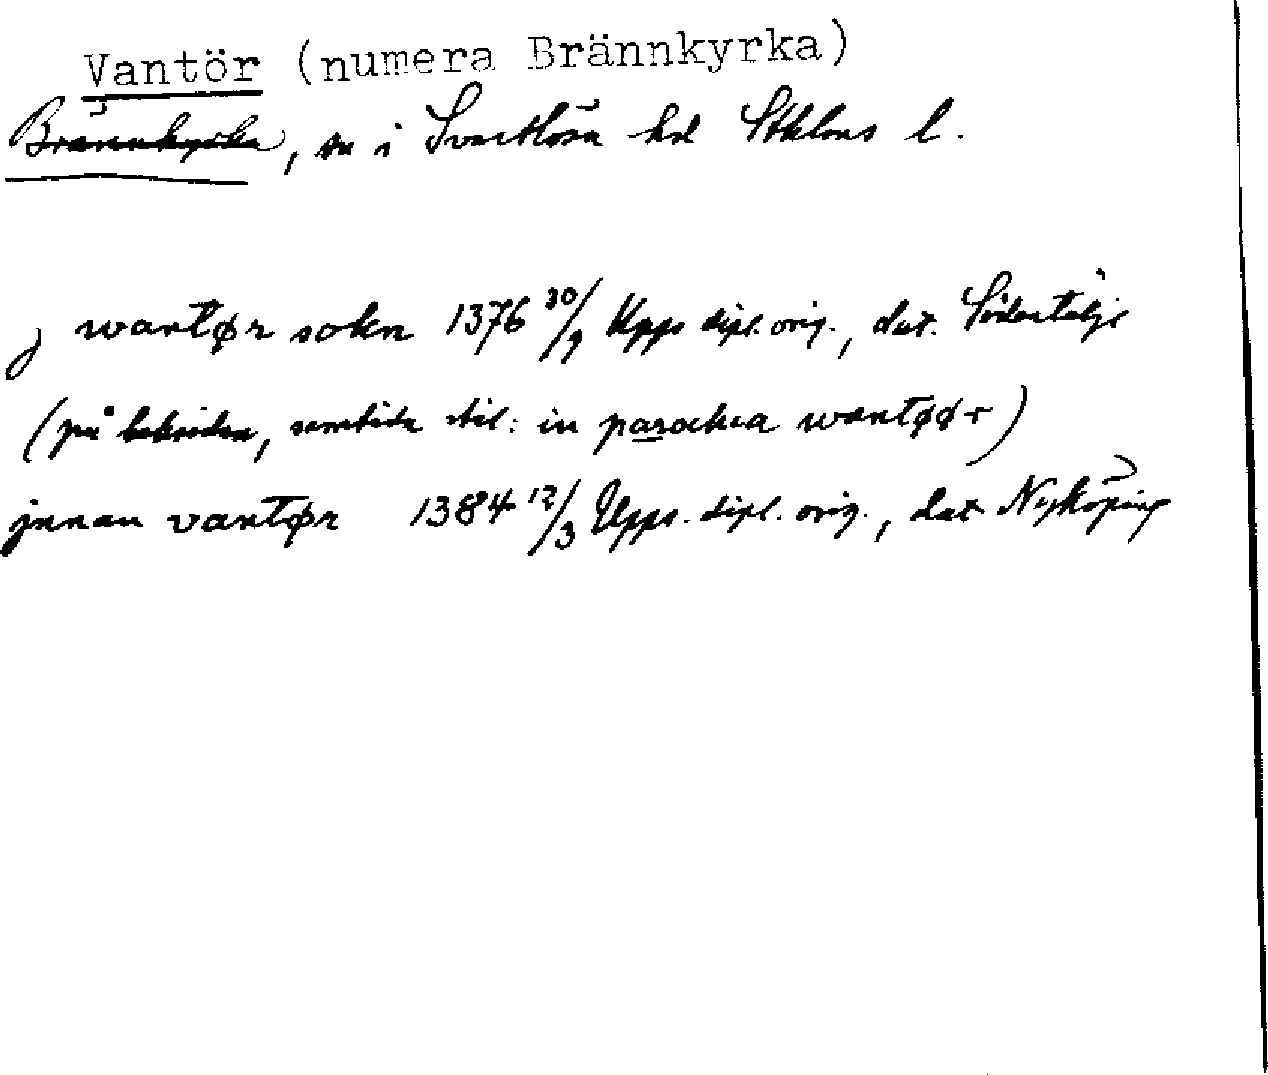 Vantör (numera Brännkyrka)
Brännkyrka, sn i Svartlösa hd Sthlms l.
j wantør sokn 1376 30/9 Upps dipl. orig., dat. Södertälje
(på baksidan, samtida stil: in parochia wantøør)
jnnan vantør 1384 12/3 Upps. dipl. orig., dat Nyköping